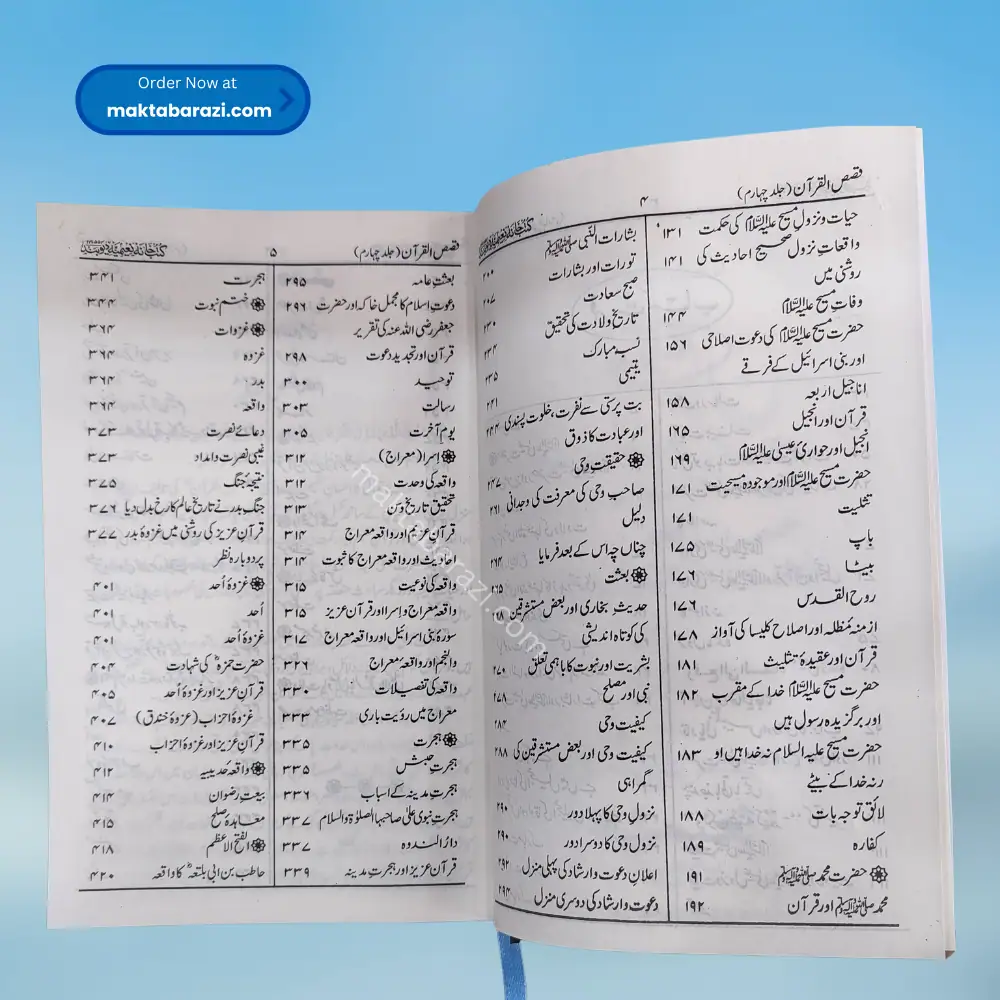 Order Now at
maktabarazi.com
قصص القرآن (جلد چہارم)
۴
حیات و نزول مسیح علیہ السلام کی حکمت ۱۳۱
واقعاتِ نزول صحیح احادیث کی ۱۴۱
روشنی میں
وفاتِ مسیح علیہ السلام ۱۴۴
حضرت مسیح علیہ السلام کی دعوت اصلاحی ۱۵۶
اور بنی اسرائیل کے فرقے
اناجیل اربعہ ۱۵۸
قرآن اور انجیل ۱۶۵
انجیل اور حواری عیسیٰ علیہ السلام ۱۶۹
حضرت مسیح علیہ السلام اور موجودہ مسیحیت ۱۷۱
تثلیت ۱۷۱
باپ ۱۷۵
بیٹا ۱۷۶
روح القدس ۱۷۶
ازمنۂ مظلمہ اور اصلاح کلیسا کی آواز ۱۷۸
قرآن اور عقیدۂ تثلیث ۱۸۱
حضرت مسیح علیہ السلام خدا کے مقرب ۱۸۲
اور برگزیدہ رسول ہیں
حضرت مسیح علیہ السلام نہ خدا ہیں او ۱۸۳
ر نہ خدا کے بیٹے
لائق توجہ بات ۱۸۸
کفارہ ۱۸۹
حضرت محمد صلی اللہ علیہ وسلم ۱۹۱
محمد صلی اللہ علیہ وسلم اور قرآن ۱۹۲
بشارات النبی صلی اللہ علیہ وسلم
تورات اور بشارات ۲۰۰
صبح سعادت ۲۰۷
تاریخ ولادت کی تحقیق ۲۳۰
نسب مبارک ۲۳۴
یتیمی ۲۳۵
۲۴۱
بت پرستی سے نفرت، خلوت پسندی
اور عبادت کا ذوق ۲۴۴
حقیقتِ وحی
۲۴۷
صاحب وحی کی معرفت کی وجدانی ۲۶۱
دلیل
چناں چہ اس کے بعد فرمایا ۲۶۳
بعثت ۲۶۵
حدیثِ بخاری اور بعض مستشرقین
کی کوتاہ اندیشی
بشریت اور نبوت کا باہمی تعلق ۲۷۰
نبی اور مصلح ۲۷۸
کیفیت وحی ۲۸۴
کیفیت وحی اور بعض مستشرقین کی ۲۸۸
گمراہی
نزول وحی کا پہلا دور ۲۹۰
نزول وحی کا دوسرا دور ۲۹۰
اعلانِ دعوت وارشاد کی پہلی منزل ۲۹۲
دعوت وارشاد کی دوسری منزل ۲۹۴
قصص القرآن (جلد چہارم)
۵
کتب خانہ نعیمیہ دیوبند
بعثتِ عامہ ۲۹۵
دعوتِ اسلام کا مجمل خاکہ اور حضرت ۲۹۶
جعفر رضی اللہ عنہ کی تقریر
قرآن اور تجدید دعوت ۲۹۸
توحید ۳۰۰
رسالت ۳۰۳
یومِ آخرت ۳۰۵
اسرا (معراج) ۳۱۲
واقعہ کی وحدت ۳۱۲
تحقیق تاریخ و سن ۳۱۳
قرآن عظیم اور واقعہ معراج ۳۱۴
احادیث اور واقعہ معراج کا ثبوت ۳۱۴
واقعہ کی نوعیت ۳۱۵
واقعہ معراج و اسرا اور قرآن عزیز ۳۱۵
سورۂ بنی اسرائیل اور واقعہ معراج ۳۱۷
والنجم اور واقعۂ معراج ۳۲۶
واقعہ کی تفصیلات ۳۳۰
معراج میں رؤیت باری ۳۳۳
ہجرت ۳۳۵
ہجرتِ حبش ۳۳۵
ہجرت مدینہ کے اسباب ۳۳۶
ہجرت نبوی علیٰ صاحبہا الصلوٰۃ والسلام ۳۳۷
دارُ الندوہ ۳۳۷
قرآن عزیز اور ہجرت مدینہ ۳۳۹
ہجرت ۳۴۱
ختم نبوت ۳۴۴
غزوات ۳۶۴
غزوہ ۳۶۴
بدر ۳۶۴
واقعہ ۳۶۴
دعائے نصرت ۳۷۳
غیبی نصرت وامداد ۳۷۳
نتیجۂ جنگ ۳۷۵
جنگِ بدر نے تاریخِ عالم کا رخ بدل دیا ۳۷۶
قرآن عزیز کی روشنی میں غزوۂ بدر ۳۷۷
پر دوبارہ نظر
غزوۂ اُحد ۴۰۱
اُحد ۴۰۱
غزوۂ اُحد ۴۰۱
حضرت حمزہؓ کی شہادت ۴۰۴
قرآن عزیز اور غزوۂ اُحد ۴۰۵
غزوۂ احزاب (غزوۂ خندق) ۴۰۷
قرآن عزیز اور غزوۂ احزاب ۴۱۰
واقعۂ حدیبیہ ۴۱۲
بیعتِ رضوان ۴۱۴
معاہدۂ صلح ۴۱۵
الفتح الاعظم ۴۱۸
حاطب بن ابی بلتعہؓ کا واقعہ ۴۲۰
maktabarazi.com